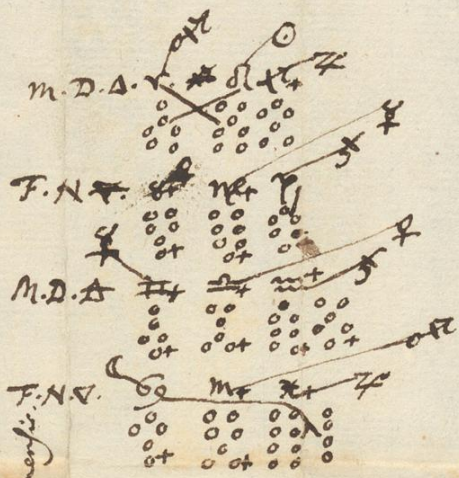 ♂ ☉
M.D.Δ. ♈ ♌ ♐+ ♃
☿ ♄
F.N. ♉+ ♍+ ♑
☿ ♀
M.D. ♊+ ♎+ ♒+ ♄
☽ ♂
F.N.∇. ♋ ♏+ ♓+ ♃